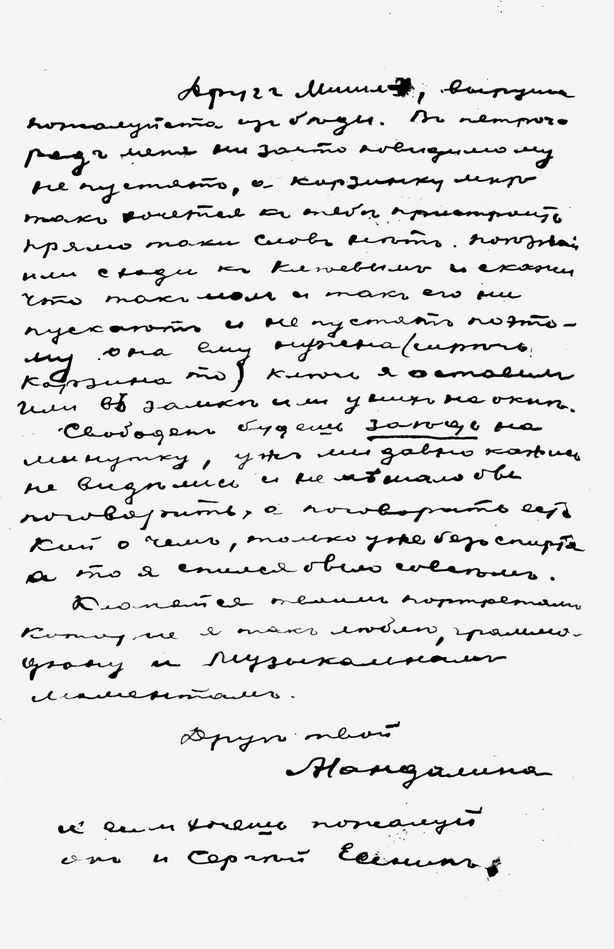 Другъ Миша, выручи
пожалуйста изъ бѣды. Въ Петрог-
радъ меня ни зачто повидимому
не пустятъ, а корзинку мнѣ
такъ хочется къ тебѣ пристроить
прямо таки словъ нѣтъ. поезжай
или сходи къ Клюевымъ и скажи
что такъ мол и такъ его ни
пускаютъ и не пустятъ поэто-
му она ему нужена (сирѣчь
корзина то) ключъ я оставилъ
или въ замкѣ или у нихъ на окнѣ.
Свободенъ будешь заѣдь на
минутку, ужъ ми давно кажись
не видѣлись и не мѣшало бы
поговорить, а поговорить есть
кой о чемъ, только уже безъ спирта
а то я спился было совсѣмъ.
Кланейся твоимъ портретамъ
которые я такъ люблю, граммо-
фону и Музыкальнымъ
моментамъ.
Другъ твой
Мандалина
и если хочешь пожалуй
онъ и Сергѣй Есенинъ.